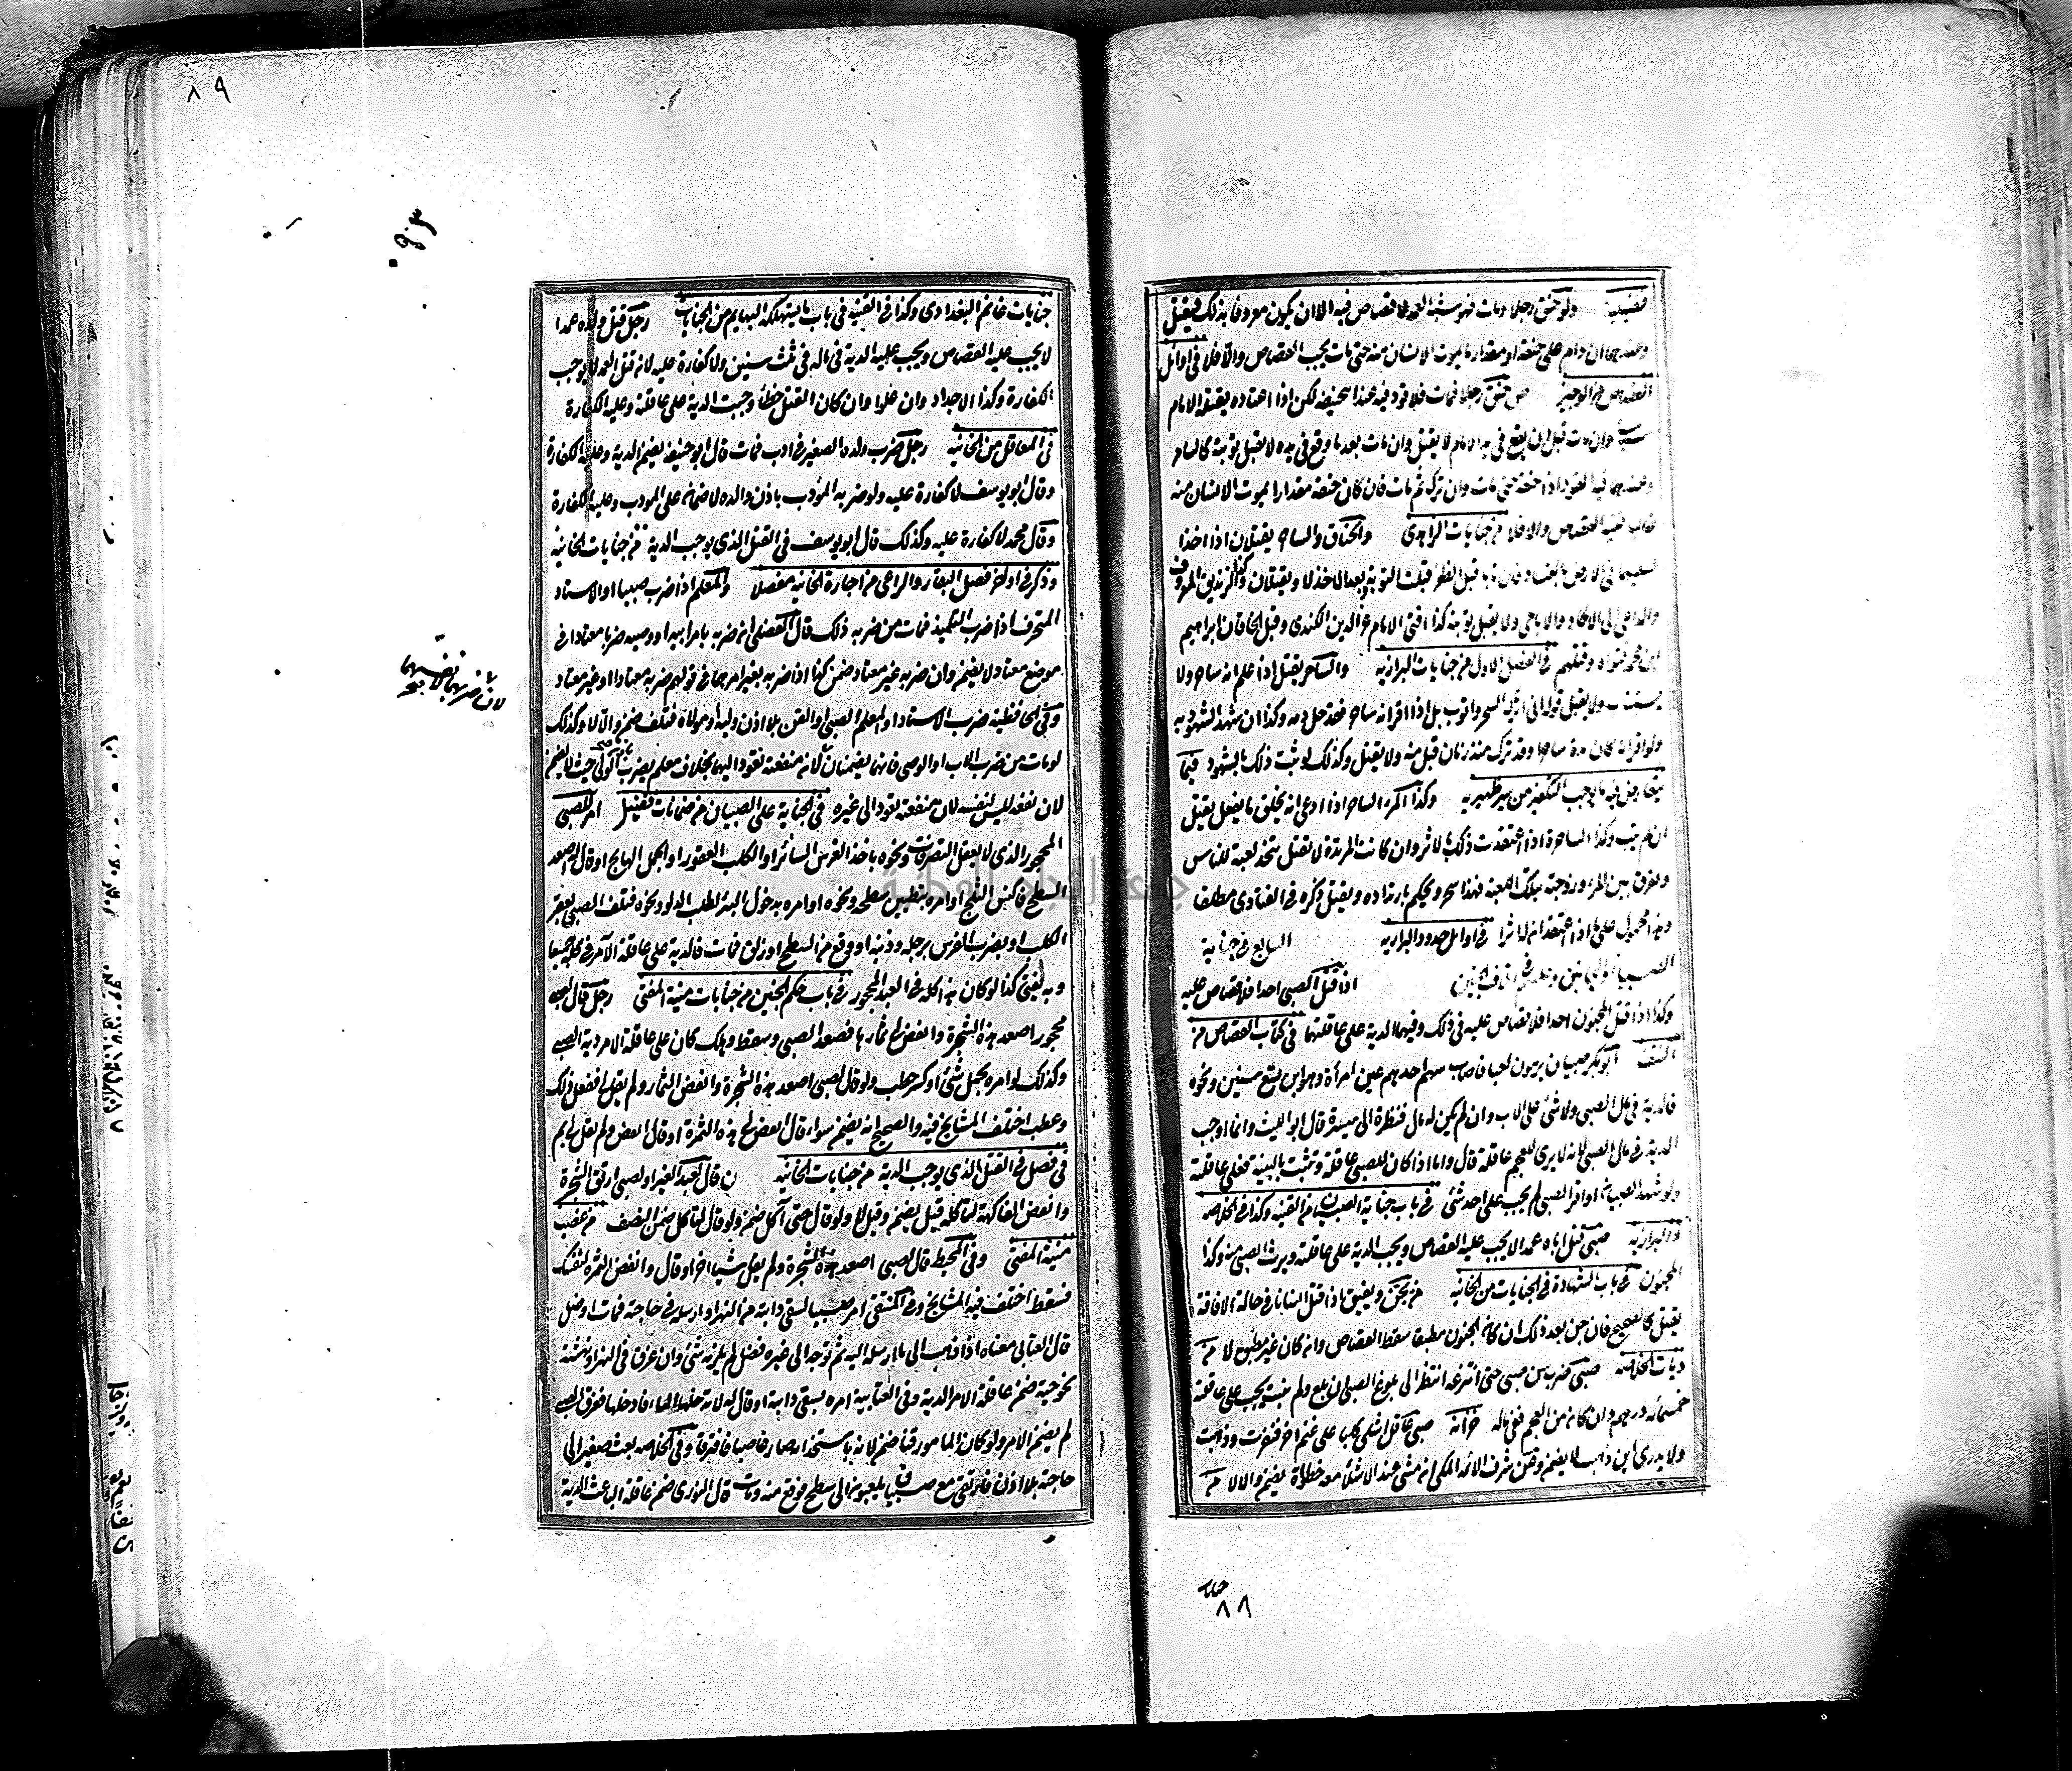 ولو خنق رجلا ومات فهو شبه العمد لا قصاص فيه الا ان يكون معروفا بذلك فيقتل
وعندهما ان دام على خنقه او مقدار ما يموت الانسان منه حتى مات يجب القصاص والا فلا في اوائل
القصاص من الوجيز خنق رجلا فمات فلا قود فيه عند ابي حنيفة لكن اذا اعتاده يقتله الامام
سياسة وان مات قبل ان يقع في يد الامام لا يقتل وان مات بعد ما وقع في يده لا يقبل توبته كالساحر
وعندهما فيه القود اذا خنقه حتى مات وان تركه ثم مات فان كان خنقه مقدار ما يموت الانسان منه
غالبا ففيه القصاص والا فلا من جنايات الزاهدي والخناق والساحر يقتلان اذا اخذا
لسعيهما في الارض بالفساد فان تابا قبل الظفر قبلت التوبة وبعد الاخذ لا ويقتلان وكذا الزنديق المعروف
والداعي الى الالحاد والاباحي ولا يقبل توبته كذا افتى الامام عز الدين الكندي وقبل الخاقان ابراهيم
ابن محمد فتواه وقتلهم في الفصل الاول من جنايات البزازية والساحر يقتل اذا علم انه ساحر ولا
يستتاب ولا يقبل قوله اني اترك السحر واتوب بل اذا اقر انه ساحر فقد حل دمه وكذا ان شهد الشهود به
ولو اقر انه كان مدة ساحرا وقد ترك منذ زمان قبل منه ولا يقتل وكذلك لو ثبت ذلك بالشهود فيما
وكذا الساحر اذا ادعى انه يخلق ما يفعل يقتل
ان لم يتب وكذا الساحرة اذا اعتقدت ذلك وان كانت المرتدة لا تقتل يتخذ لعبة للناس
ويفرق بين المرء وزوجته بتلك اللعبة فهذا سحر ويحكم بارتداده ويقتل ذكره في الفتاوى مطلقا
وهو محمول على ما اذا اعتقد ان له اثرا في اوائل حدود البزازية السابع في جناية
الصبيان والمجانين اذا قتل الصبي احدا فلا قصاص عليه
وكذا اذا قتل المجنون احدا فلا قصاص عليه في ذلك وفيهما الدية على عاقلتهما في كتاب القصاص من
النتف ابو بكر صبيان يرمون لعبا فاصاب سهم احدهم عين امرأة وهو ابن تسع سنين ونحوه
فالدية في مال الصبي ولا شئ على الاب وان لم يكن له مال فنظرة الى ميسرة قال ابو الليث وانما اوجب
الدية في مال الصبي لانه لا يرى للعجم عاقلة قال واما اذا كان للصبي عاقلة وثبت بالبينة فعلى عاقلته
ولو شهد الصبيان او اقر الصبي لم يجب على احد شئ في باب جناية الصبيان من القنية وكذا في الخلاصة
والبزازية صبي قتل اباه عمدا لا يجب عليه القصاص ويجب الدية على عاقلته ويرث الصبي منه وكذا
المجنون في باب الشهادة في الجنايات من الخانية من يجن ويفيق اذا قتل انسانا في حالة الافاقة
يقتل كالصحيح فان جن بعد ذلك ان كان الجنون مطبقا سقط القصاص وان كان غير مطبق لا من
ديات الخلاصة صبي ضرب سن صبي حتى انتزعه انتظر الى بلوغ الصبي ان بلغ ولم ينبت يجب على عاقلته
خمسمائة درهم وان كان من العجم ففي ماله خزانة صبي عاقل اشلى كلبا على غنم اخر فنفرت وذهبت
ولا يدرى اين ذهبت لا يضمن وعن شرف الائمة المكي انه مشى عند الاشلاء معه خطوات يضمن والا لا من
جنايات
٨٨
٨٩
جنايات غانم البغدادي وكذا في القنية في باب ما يستهلكه البهايم من الجنايات رجل قتل ولده عمدا
لا يجب عليه القصاص ويجب عليه الدية في ماله في ثلث سنين ولا كفارة عليه لانه قتل العمد لا يوجب
الكفارة وكذا الاجداد وان علوا وان كان القتل خطأ وجبت الدية على عاقلته وعليه الكفارة
في المعاقل من الخانية رجل ضرب ولده الصغير في ادب فمات قال ابو حنيفة يضمن الدية وعليه الكفارة
وقال ابو يوسف لا كفارة عليه ولو ضربه المؤدب باذن والده لا ضمان على المودب وعليه الكفارة
وقال محمد لا كفارة عليه وكذلك قال ابو يوسف في القتل الذي يوجب الدية من جنايات الخانية
وذكر في اواخر فصل البقار والراعي من اجارة الخانية مفصلا والمعلم اذا ضرب صبيا او الاستاد
المحترف اذا ضرب التلميذ فمات من ضربه ذلك قال الفضلي ان ضربه بامر ابيه او وصيه ضربا معتادا في
موضع معتاد لا يضمن وان ضربه غير معتاد ضمن كذا اذا ضربه بغير امرهما في قولهم ضربه معتادا او غير معتاد
وفي الحافظية ضرب الاستاد او المعلم الصبي او القن بلا اذن وليه او مولاه فتلف ضمن والا لا وكذلك
لو مات من ضرب الاب او الوصي فانهما يضمنان لانه منفعته تعود اليهما بخلاف معلم يضرب حيث لا يضمن
لان نفعه ليس لنفسه لان منفعته تعود الى غيره في الجناية على الصبيان من ضمانات فضيل امر الصبي
المحجور الذي لا يعقل التصرفات ونحوه باخذ الفرس السائر او الكلب العقور او الجمل الهايج او قال له اصعد
السطح فاكنس الثلج او امره بتطيين سطحه ونحوه او امره بدخول البئر لطلب الدلو ونحوه فتلف الصبي بعقر
الكلب او بضرب الفرس برجله وذنبه او وقع من السطح او زلق فمات فالدية على عاقلة الآمر في كلها جميعا
وبه يفتى كذا لو كان هذا كله في العبد المحجور في باب حكم الجنين من جنايات منية المفتي رجل قال لصبي
محجور اصعد هذه الشجرة وانفض لي ثمارها فصعد الصبي وسقط وهلك كان على عاقلة الامر دية الصبي
وكذلك لو امره بحمل شئ او كسر حطب ولو قال لصبي اصعد هذه الشجرة وانفض الثمار ولم يقل لي ففعل ذلك
وعطب اختلف المشايخ فيه والصحيح انه يضمن سواء قال انفض لي هذه الثمرة او قال انفض ولم يقل لي
في فصل في القتل الذي يوجب الدية من جنايات الخانية ن قال لعبد الغير او لصبي ارتق الشجرة
وانفض الفاكهة لتأكله قيل يضمن وقيل لا ولو قال حتى آكل ضمن ولو قال لنا كل ضمن النصف من غصب
منية المفتي وفي المحيط قال لصبي اصعد هذه الشجرة ولم يقل شيئا اخر او قال وانفض الثمر لنفسك
فسقط اختلف فيه المشايخ وفي المنتقى امر صبيا لسقي دابته من النهر او ارسله في حاجته فمات او ضل
قال العتابي معناه اذا ذهب الى ما ارسله اليه ثم توجه الى غيره فضل لم يلزمه شئ وان غرق في النهر او نهشته
نحو حية ضمن عاقلة الامر الدية وفي العتابية امره بسقي دابة او قال له فادخلها فغرق الصبي
لم يضمن الامر ولو كان المامور قنا ضمن لانه باستخدامه صار غاصبا فافترقا وفي الخلاصة بعث صغيرا الى
حاجته بلا اذن فارتقى مع صبيان يلعبون الى سطح فوقع منه ومات قال الثوري ضمن عاقلة الباعث الدية